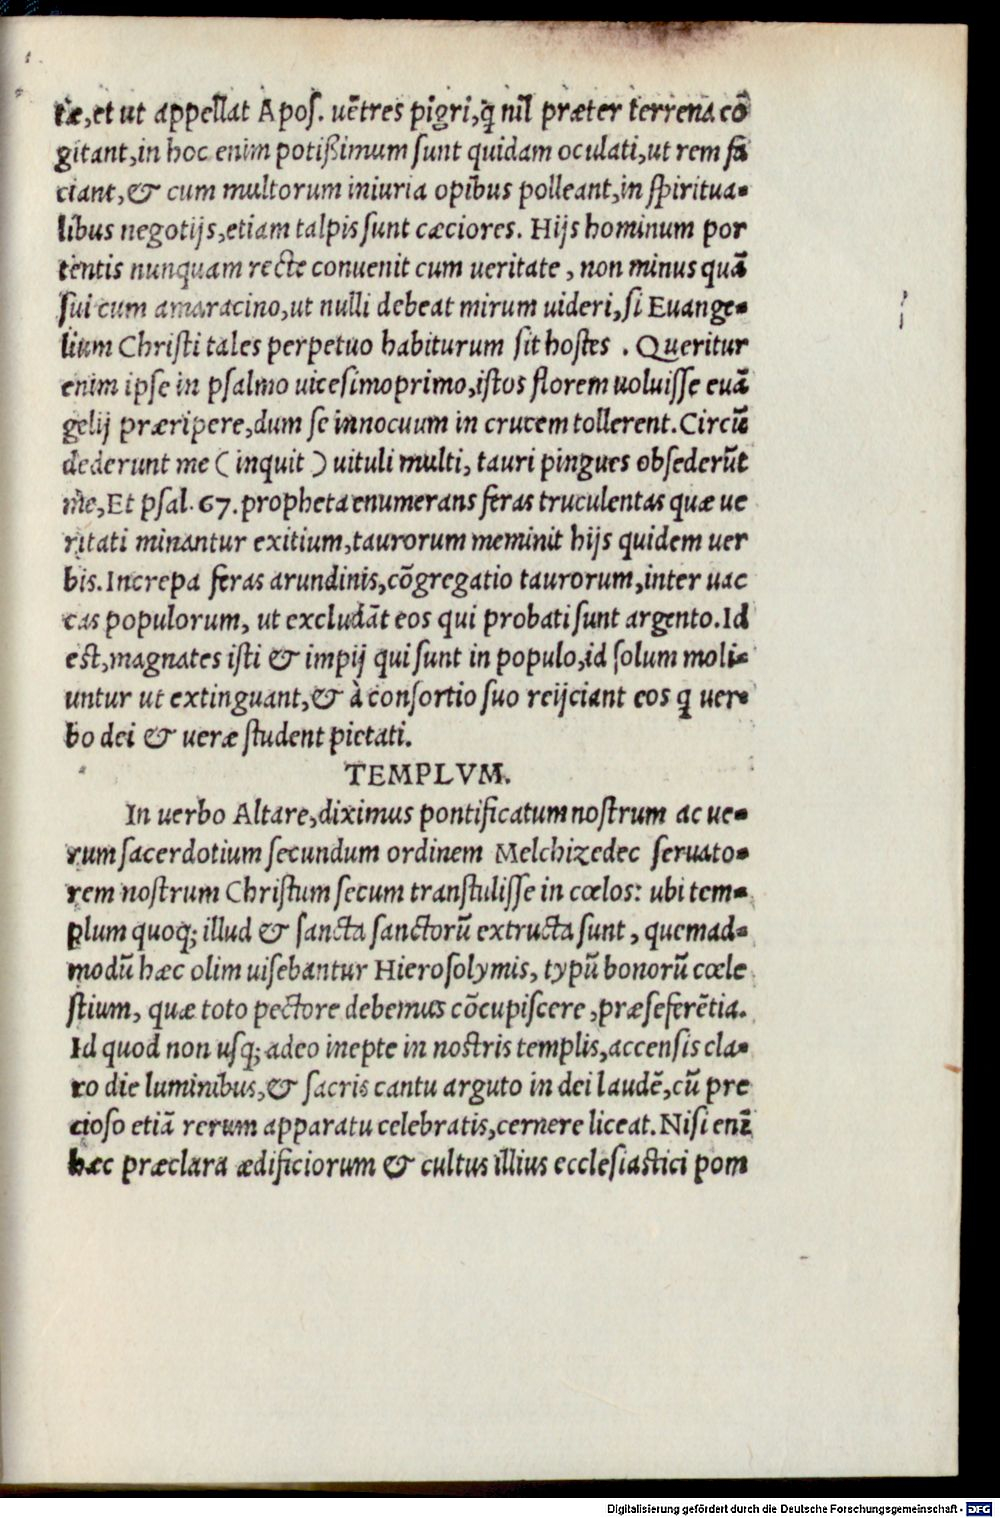 tæ,et ut appellat Apos. uẽtres pigri,q̃ nil præter terrena cõ
gitant,in hoc enim potißimum sunt quidam oculati,ut rem fa
ciant,& cum multorum iniuria opibus polleant,in spiritua-
libus negotijs,etiam talpis sunt cæciores. Hijs hominum por
tentis nunquam recte conuenit cum ueritate, non minus quã
sui cum amaracino,ut nulli debeat mirum uideri,si Euange-
lium Christi tales perpetuo habiturum sit hostes . Queritur
enim ipse in psalmo uicesimoprimo,istos florem uoluisse euã
gelij præripere,dum se innocuum in crucem tollerent.Circũ
dederunt me ( inquit ) uituli multi, tauri pingues obsederũt
me,Et psal. 67.propheta enumerans feras truculentas quæ ue
ritati minantur exitium,taurorum meminit hijs quidem uer
bis.Increpa feras arundinis,cõgregatio taurorum,inter uac
cas populorum, ut excludãt eos qui probati sunt argento.Id
est,magnates isti & impij qui sunt in populo,id solum moli-
untur ut extinguant,& à consortio suo reijciant eos q̃ uer-
bo dei & ueræ student pietati.
TEMPLVM.
In uerbo Altare,diximus pontificatum nostrum ac ue-
rum sacerdotium secundum ordinem Melchizedec seruato-
rem nostrum Christum secum transtulisse in cœlos: ubi tem-
plum quoq; illud & sancta sanctorũ extructa sunt, quemad-
modũ hæc olim uisebantur Hierosolymis, typũ bonorũ cœle
stium, quæ toto pectore debemus cõcupiscere ,præseferẽtia.
Id quod non usq; adeo inepte in nostris templis,accensis cla-
ro die luminibus,& sacris cantu arguto in dei laudẽ,cũ pre
cioso etiã rerum apparatu celebratis,cernere liceat.Nisi enĩ
hæc præclara ædificiorum & cultus illius ecclesiastici pom
Digitalisierung gefördert durch die Deutsche Forschungsgemeinschaft - DFG